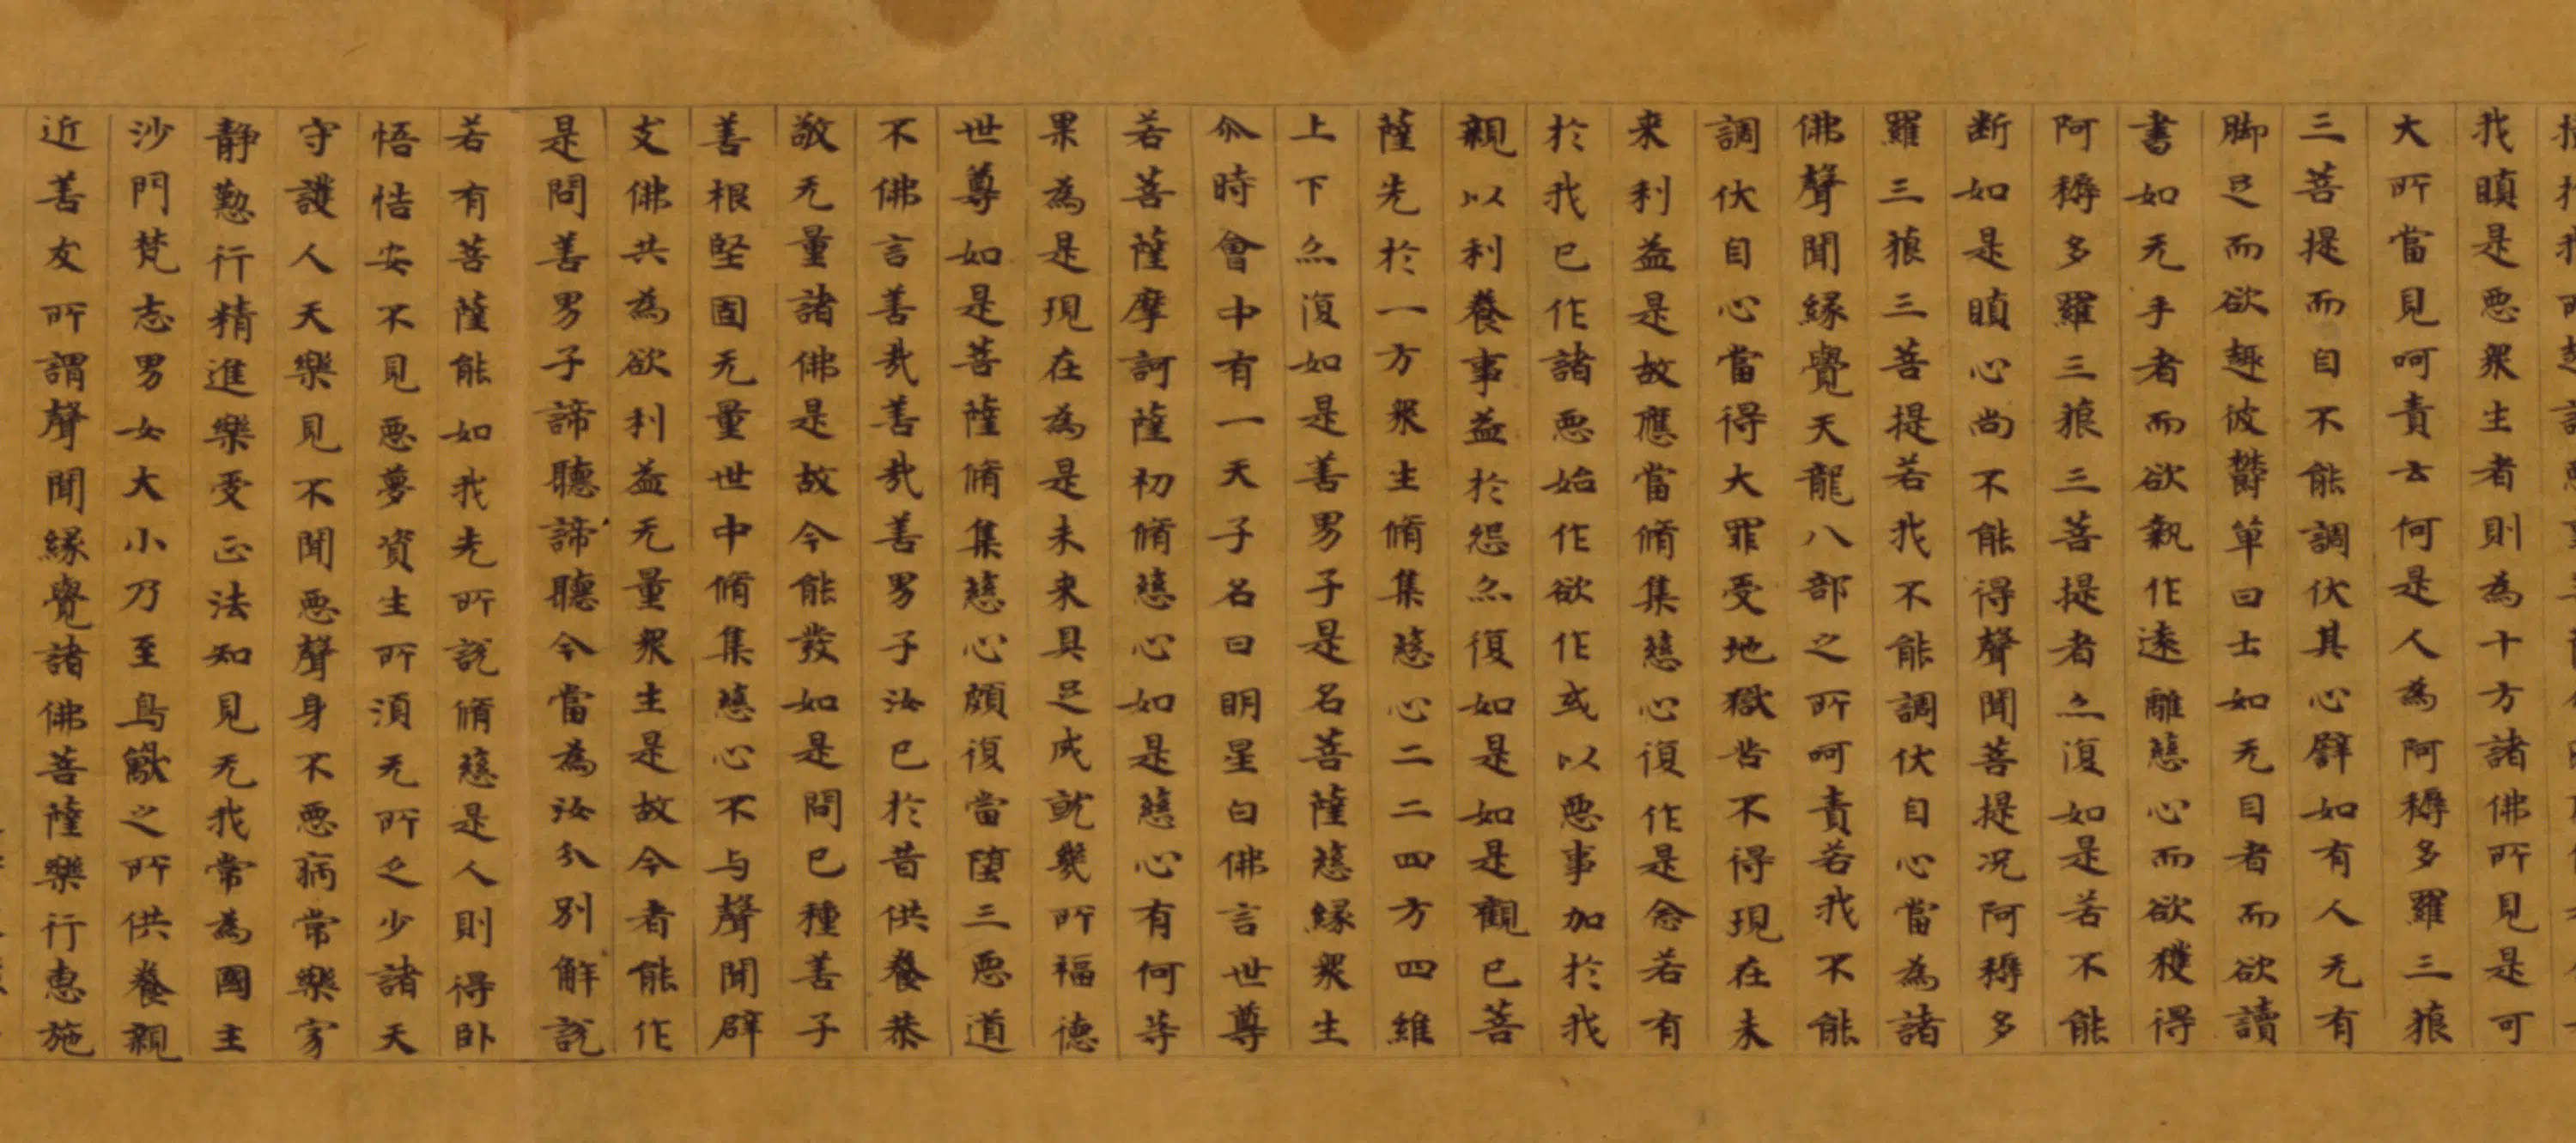 我瞋是悪衆生者則為十方諸佛所見是可
大所當見呵責云何是人為阿耨多羅三藐
三菩提而自不能調伏其心譬如有人无有
脚足而欲趣彼欝單曰士如无目者而欲讀
書如无手者而欲執作遠離慈心而欲獲得
阿耨多羅三藐三菩提者亦復如是若不能
断如是瞋心尚不能得聲聞菩提况阿耨多
羅三藐三菩提若我不能調伏自心當為諸
佛聲聞縁覺天龍八部之所呵責若我不能
調伏自心當得大罪受地獄苦不得現在未
来利益是故應當脩集慈心復作是念若有
於我已作諸悪始作欲作或以悪事加於我
親以利養事益於怨亦復如是如是觀已菩
薩先於一方衆生脩集慈心二二四方四維
上下亦復如是善男子是名菩薩慈縁衆生
尒時會中有一天子名曰明星白佛言世尊
若菩薩摩訶薩初脩慈心如是慈心有何等
果為是現在為是未来具足成就幾所福德
世尊如是菩薩脩集慈心頗復當墮三悪道
不佛言善哉善哉善男子汝已於昔供養恭
敬无量諸佛是故今能發如是問已種善子
善根堅固无量世中脩集慈心不与聲聞辟
支佛共為欲利益无量衆生是故今者能作
是問善男子諦聽諦聽今當為汝分別解説
若有菩薩能如我先所説脩慈是人則得卧
悟恬安不見悪夢資生所須无所乏少諸天
守護人天樂見不聞悪聲身不悪病常樂寂
静懃行精進樂受正法知見无我常為國主
沙門梵志男女大小乃至鳥獸之所供養親
近善友所謂聲聞縁覺諸佛菩薩樂行恵施